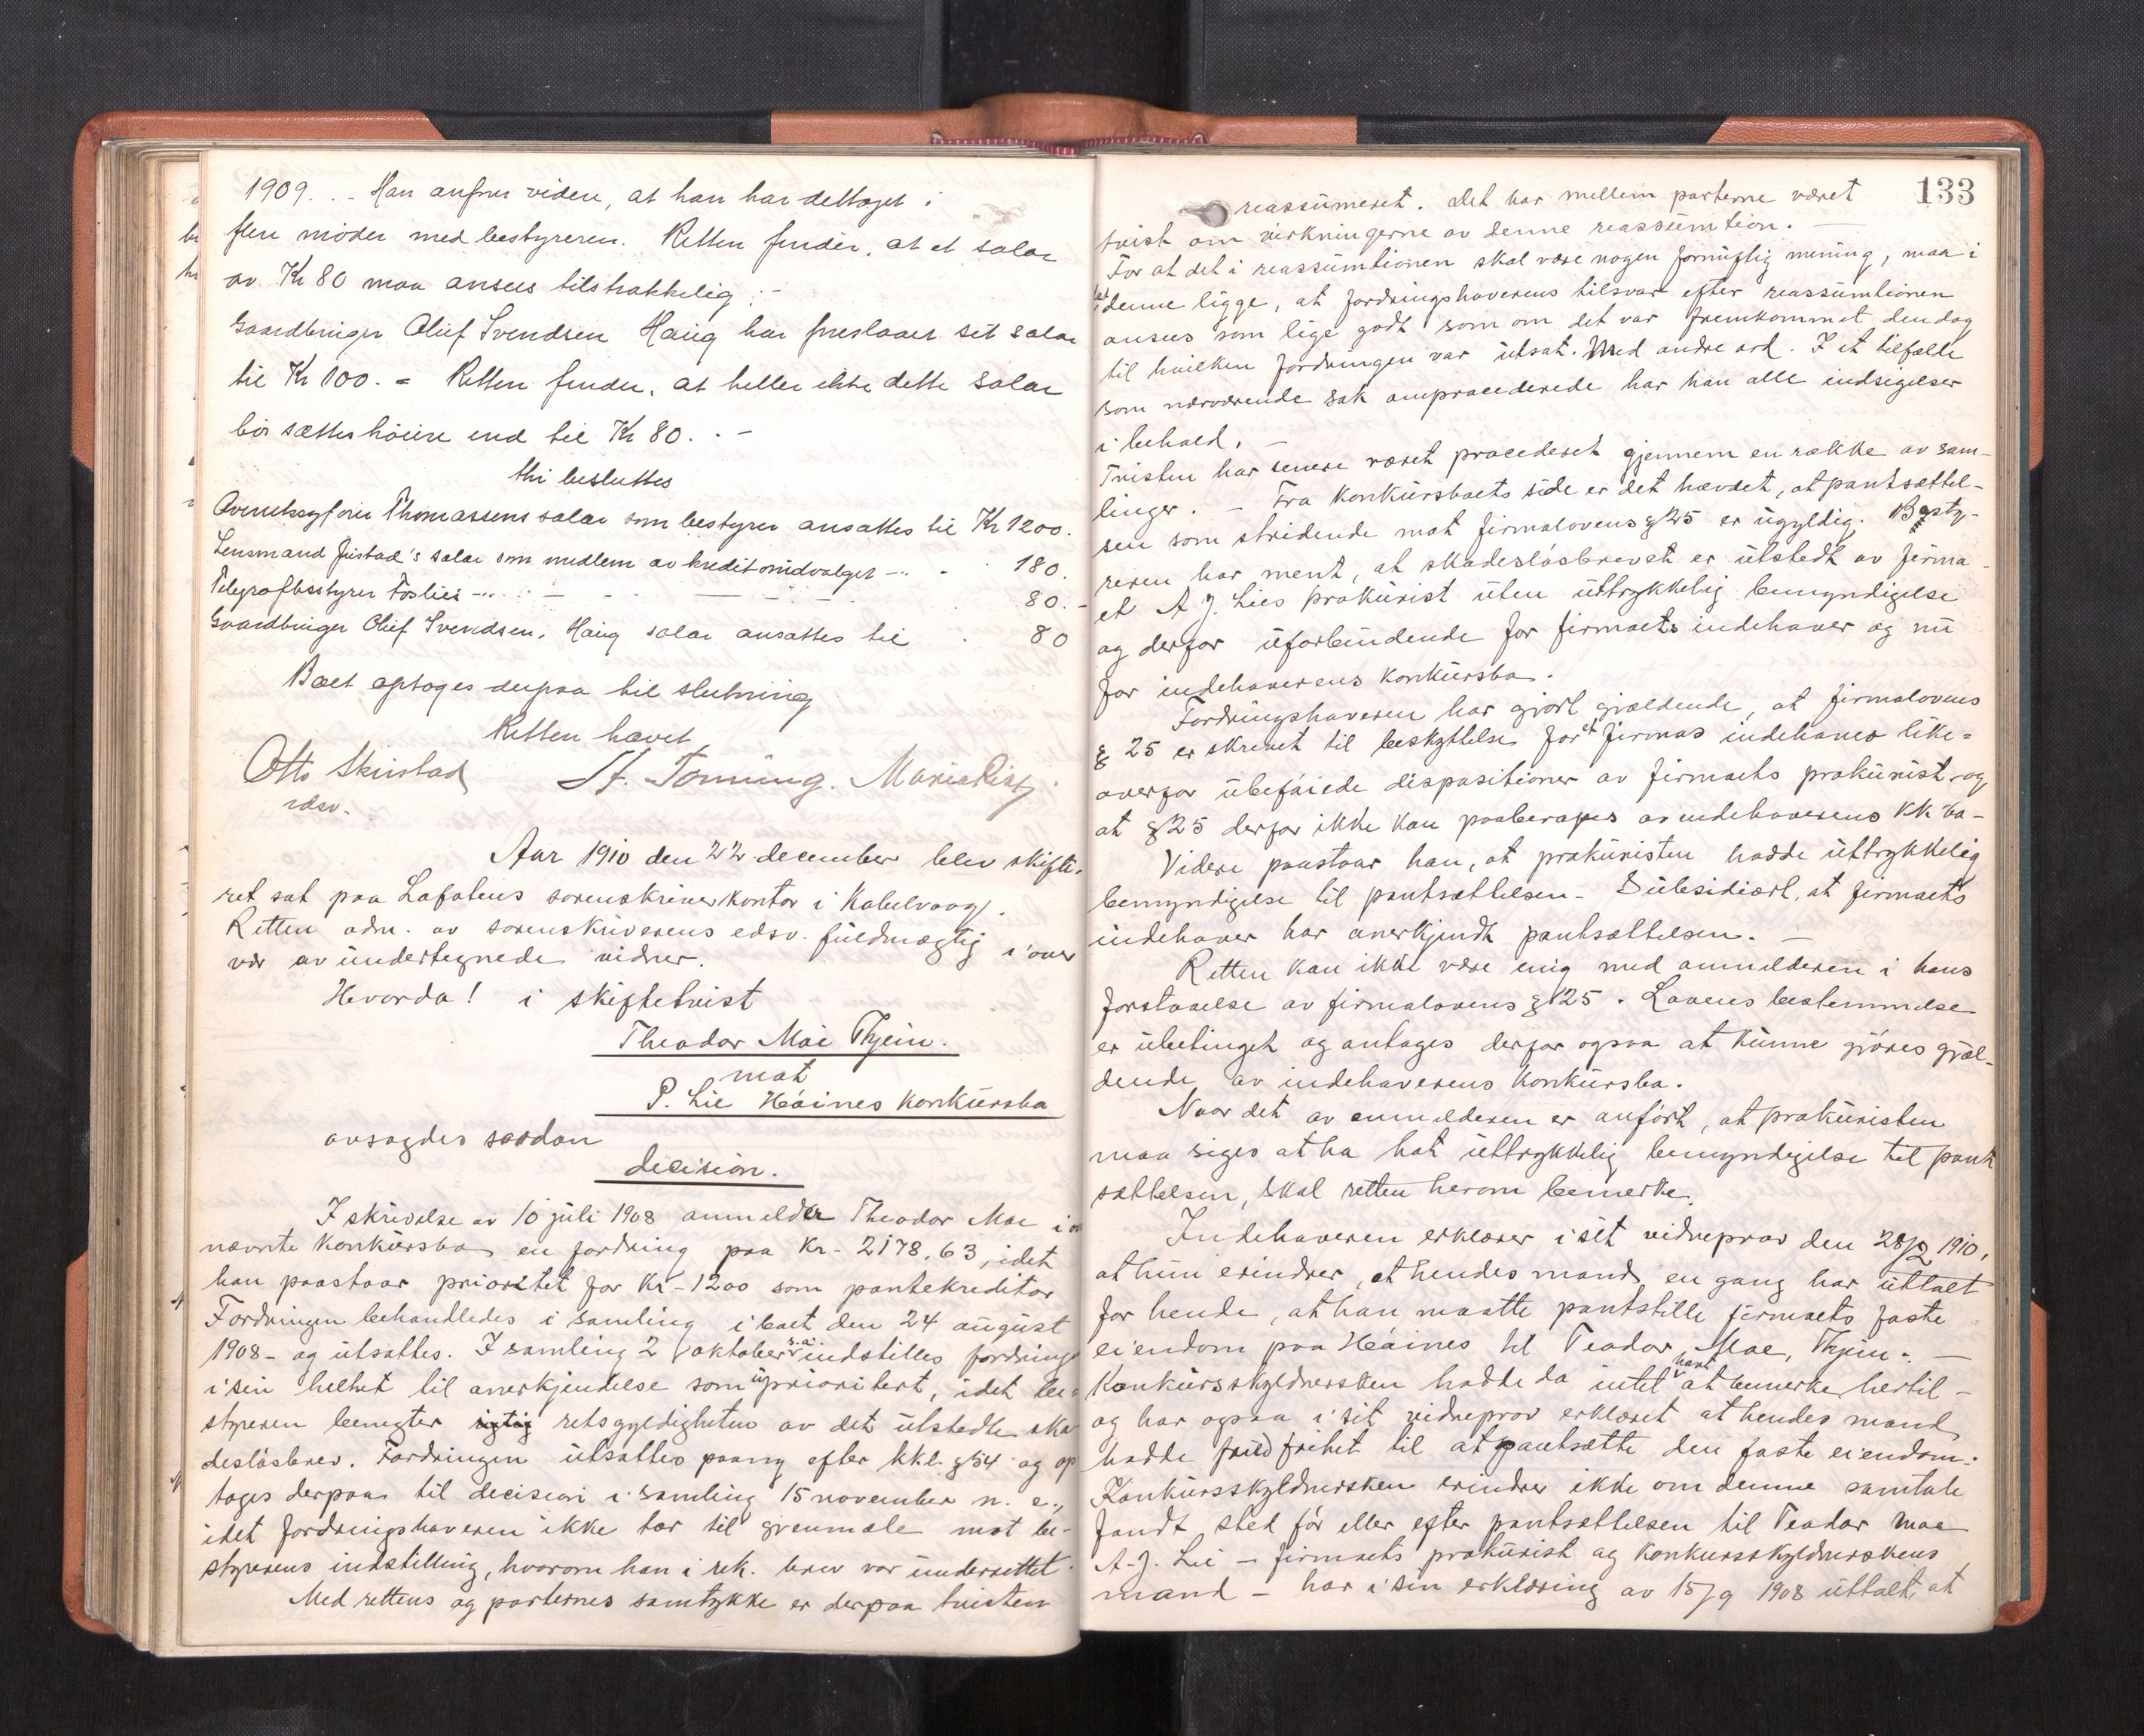 1909. . - Han anfører videre, at han har deltaget i
flere møder med bestyreren. Retten finder, at et salær
av Kr 80 maa ansees tilstrækkelig. -
Gaardbruger Oluf Svendsen Haug har foreslaaet sit salær
til Kr 100. = Retten finder, at heller ikke dette salær
bør sættes høiere end til Kr 80. . -
thi besluttes
Overretssagfører Thomassens salær som bestyrer ansættes til Kr 1200.
Lensmand Justad's salær som medlem av kreditorudvalget -"- - 180.
Telegrafbestyrer Foslies -"- - - - - 80. -
Gaardbruger Oluf Svendsen, Haug salær ansættes til . 80
Boet optoges derpaa til slutning
Retten hævet
Otto Skirstad
edsv.
H. Tonning. Marie Risø
Aar 1910 den 22 december blev skifte-
ret sat paa Lofotens sorenskriverkontor i Kabelvaag.
Retten adm. av sorenskriverens edsv. fuldmægtig i over
vær av undertegnede vidner.
Hvorda! i skiftetvist
Theodor Moe Thjem.
mot
P. Lie Høines konkursbo
avsagdes saadan
decision.
I skrivelse av 10 juli 1908 anmelder Theodor Moe i o
nævnte konkursbo en fordring paa Kr - 2178.63, idet
han paastaar prioritet for Kr - 1200 som pantekreditor
Fordringen behandledes i samling i boet den 24 august
1908 - og utsattes. I samling 2 oktober s.a. indstilles fordringe
i sin helhet til anerkjendelse som uprioritert, idet be-
styreren benegter igtig retsgyldigheten av det utstedte ska
desløsbrev. Fordringen utsattes paany efter kkl. § 54 og op
toges derpaa til decision i samling 15 november n. e.,
idet fordringshaveren ikke tar til gjenmæle mot be-
styrerens indstilling, hvorom han i rek. brev var underrettet.
Med rettens og parternes samtykke er derpaa tvisten
133
reassumeret. Det har mellem parterne været
tvist om virkningerne av denne reassumtion. -
For at det i reassumtionen skal være nogen fornuftig mening, maa i
det denne ligge, at fordringshaverens tilsvar efter reassumtionen
ansees som lige godt som om det var fremkommet den dag
til hvilken fordringen var utsat. Med andre ord. I et tilfælde
som nærværende sak omprocederede har han alle indsigelser
i behold. -
Tvisten har senere været procederet gjennem en række av sam-
linger. - Fra konkursboets side er det hævdet, at pantsættel-
sen som stridende mot firmalovens § 25 er ugyldig. Besty-
reren har ment, at skadesløsbrevet er utstedt av firma-
et A J. Lies prokurist uten uttrykkelig bemyndigelse
og derfor uforbindende for firmaets indehaver og nu
for indehaverens konkursbo.
Fordringshaveren har gjort gjældende, at firmalovens
§ 25 er skrevet til beskyttelse for et firmas indehaver like-
overfor ubeføiede dispositioner av firmaets prokurist og
at § 25 derfor ikke kan paaberapes av indehaverens kk bo -
Videre paastaar han, at prokuristen hadde uttrykkelig
bemyndigelse til pantsættelsen - Subsidiært, at firmaets
indehaver har anerkjendt pantsættelsen. -
Retten kan ikke være enig med anmelderen i hans
forstaaelse av firmalovens § 25. Lovens bestemmelse
er ubetinget og antages derfor ogsaa at kunne gjøres gjæl-
dende av indehaverens konkursbo.
Naar det av anmelderen er anført, at prokuristen
maa siges at ha hat uttrykkelig bemyndigelse til pant
sættelsen, skal retten herom bemerke.
Indehaveren erklærer i sit vidneprov den 28/2 1910,
at hun erindrer, at hendes mand en gang har uttalt
for hende, at han maatte pantstille firmaets faste
eiendom paa Høines til Teodor Moe, Thjem. -
Konkursskyldnersken hadde da intet havt at bemerke hertil -
og har ogsaa i sit vidneprov erklæret at hendes mand
hadde fuld frihet til at pantsætte den faste eiendom.
Konkursskyldnersken erindrer ikke om denne samtale
fandt sted før eller efter pantsættelsen til Teodor Moe
A-J. Lie - firmaets prokurist og konkursskyldnerskens
mand - har i sin erklæring av 15/9 1908 uttalt, at